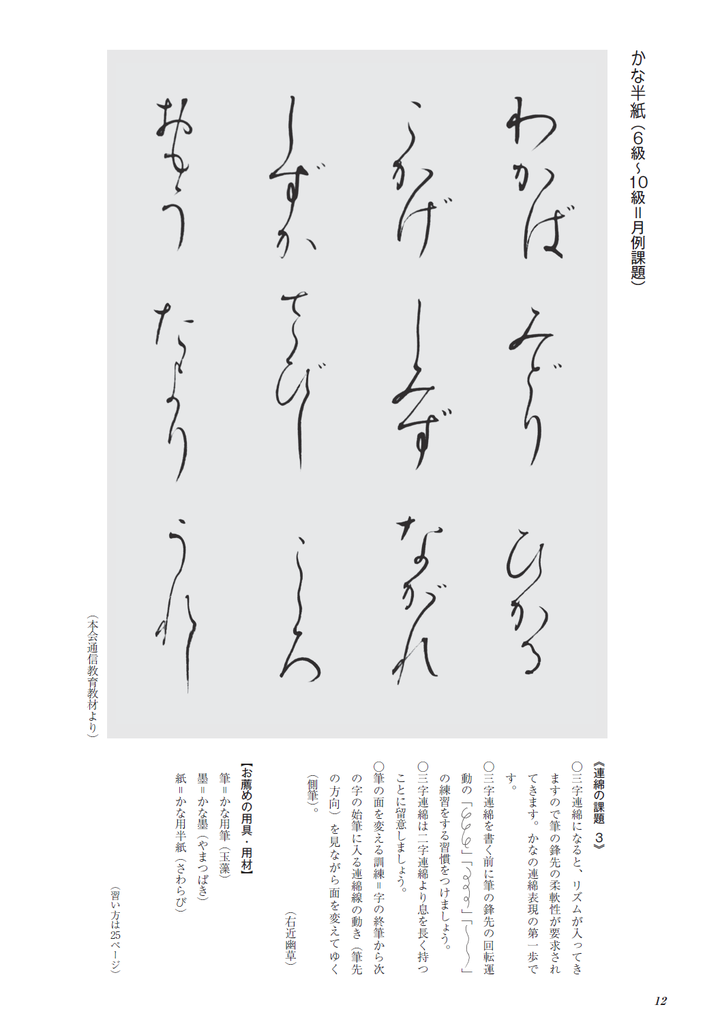 かな半紙（6級〜10級＝月例課題）
わかば みどり ひかる
こかげ しみず ながれ
しずか さびし こころ
おもう たより うれし
（本会通信教育教材より）
《連綿の課題 3》
〇三字連綿になると、リズムが入ってき
ますので筆の鋒先の柔軟性が要求され
てきます。かなの連綿表現の第一歩で
す。
〇三字連綿を書く前に筆の鋒先の回転運
動の「」「」「」
の練習をする習慣をつけましょう。
〇三字連綿は二字連綿より息を長く持つ
ことに留意しましょう。
〇筆の面を変える訓練＝字の終筆から次
の字の始筆に入る連綿線の動き（筆先
の方向）を見ながら面を変えてゆく
（側筆）。
（右近幽草）
【お薦めの用具・用材】
筆＝かな用筆（玉藻）
墨＝かな墨（やまつばき）
紙＝かな用半紙（さわらび）
（習い方は25ページ）
12